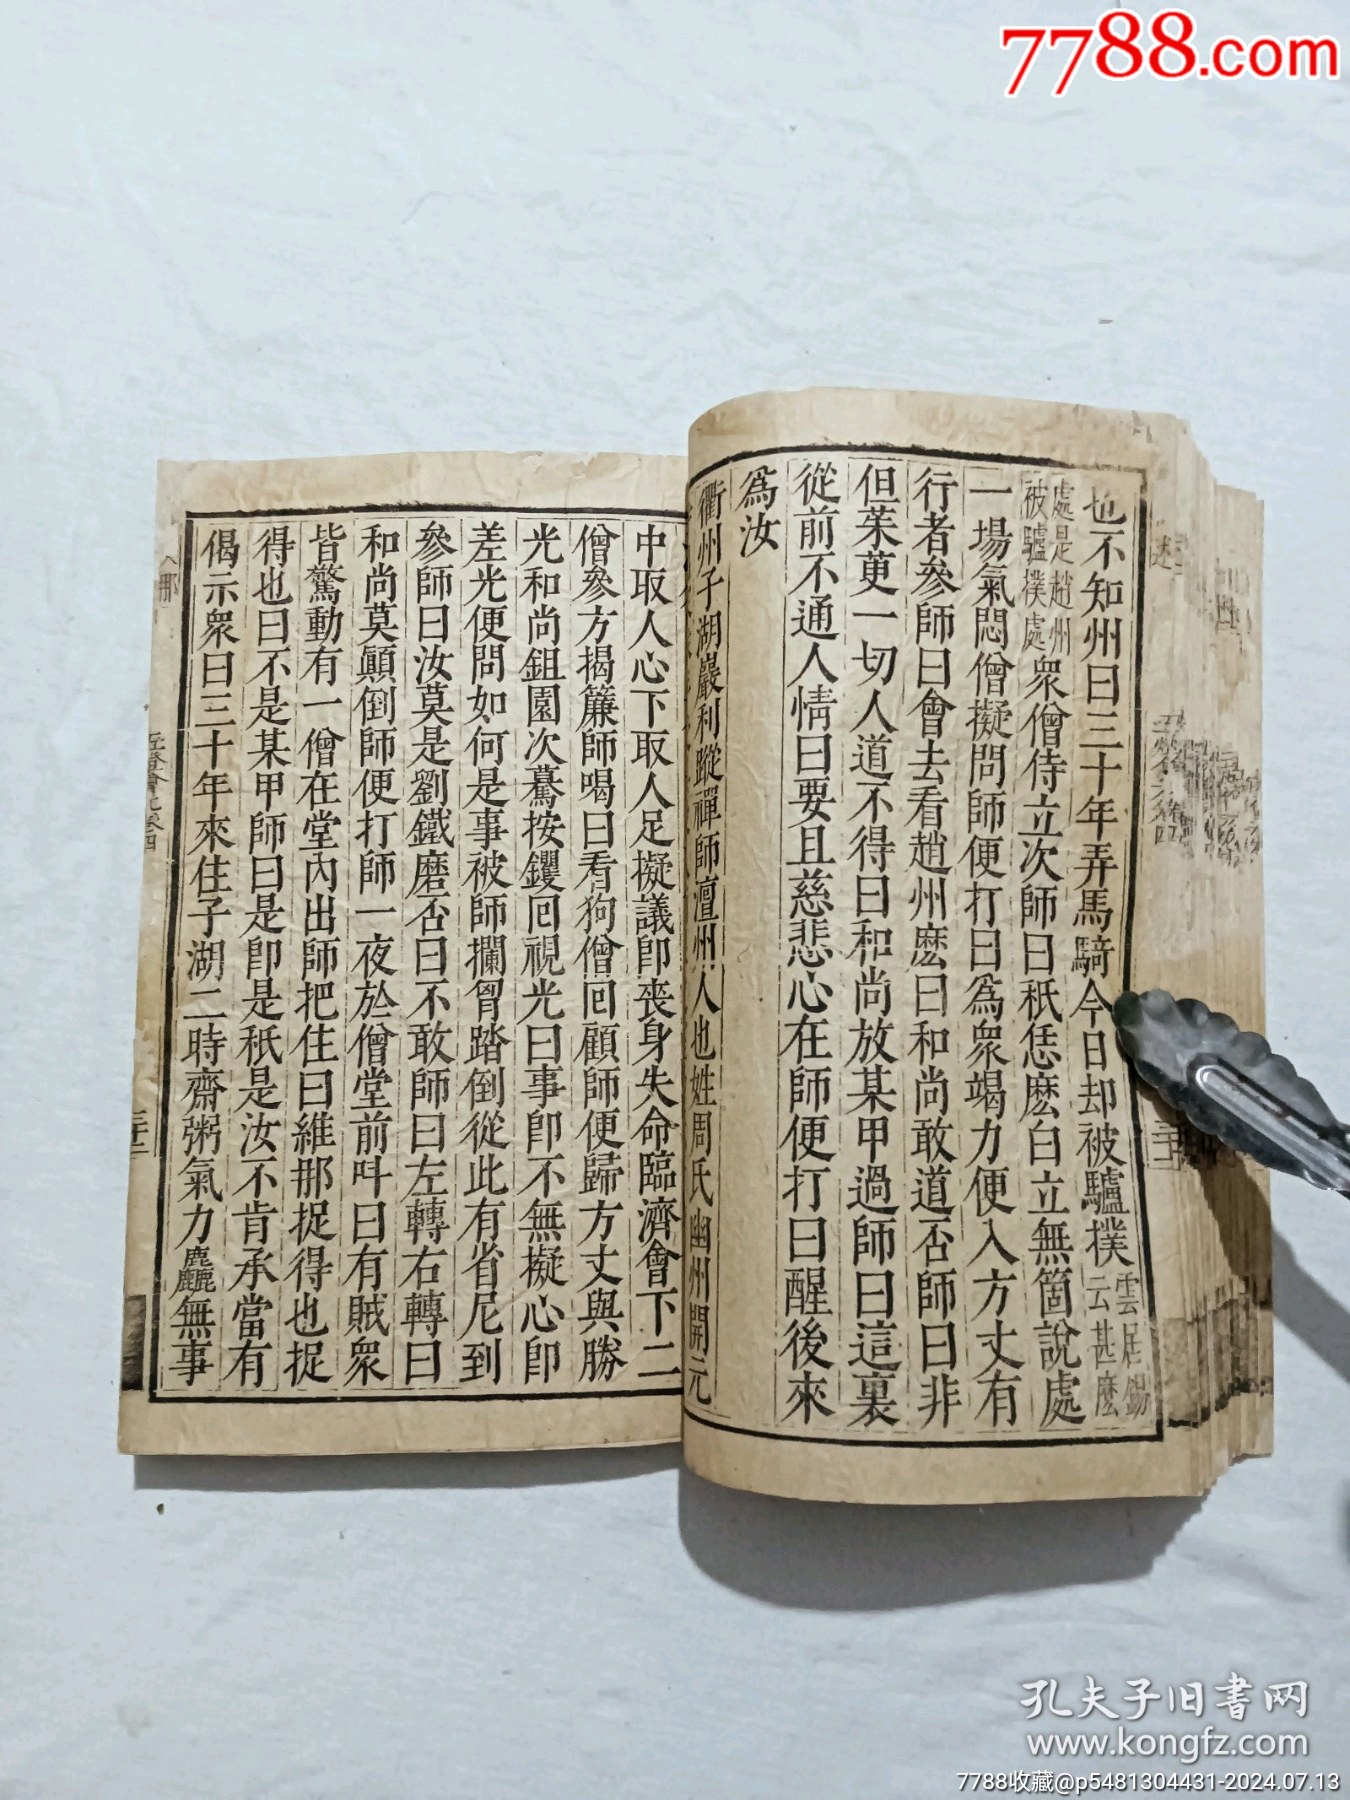 7788.com
也不知州曰三十年弄馬騎今日却被驢撲雲居錫云甚麼
處是趙州被驢撲處衆僧侍立次師曰秖恁麽白立無箇說處
一場氣悶僧擬問師便打曰爲衆竭力便入方丈有
行者參師曰會去看趙州麽曰和尚敢道否師曰非
但茱萸一切人道不得曰和尚放某甲過師曰這裏
從前不通人情曰要且慈悲心在師便打曰醒後來
爲汝
衢州子湖巖利蹤禪師澶州人也姓周氏幽州開元
中取人心下取人足擬議卽喪身失命臨濟會下二
僧參方揭簾師喝曰看狗僧回顧師便歸方丈與勝
光和尚鉏園次驀按钁回視光曰事卽不無擬心卽
差光便問如何是事被師攔胷踏倒從此有省尼到
參師曰汝莫是劉鐵磨否曰不敢師曰左轉右轉曰
和尚莫顚倒師便打師一夜於僧堂前呌曰有賊衆
皆驚動有一僧在堂內出師把住曰維那捉得也捉
得也曰不是某甲師曰是卽是秖是汝不肯承當有
偈示衆曰三十年來住子湖二時齋粥氣力麤無事
五燈會元卷四
三十二
孔夫子旧書网
www.kongfz.com
7788收藏@p5481304431-2024.07.13